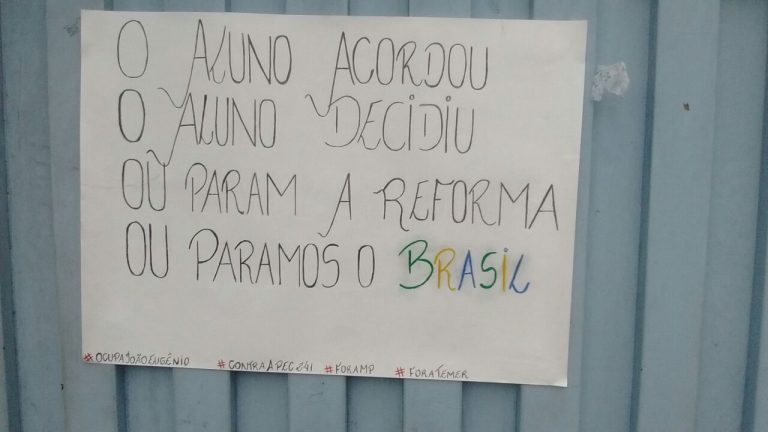 O ALUNO ACORDOU
O ALUNO DECIDIU
OU PARAM A REFORMA
OU PARAMOS O BRASIL
#OCUPAJOÃOEUGÊNIO #CONTRAAPEC241 #FORAMP #FORATEMER